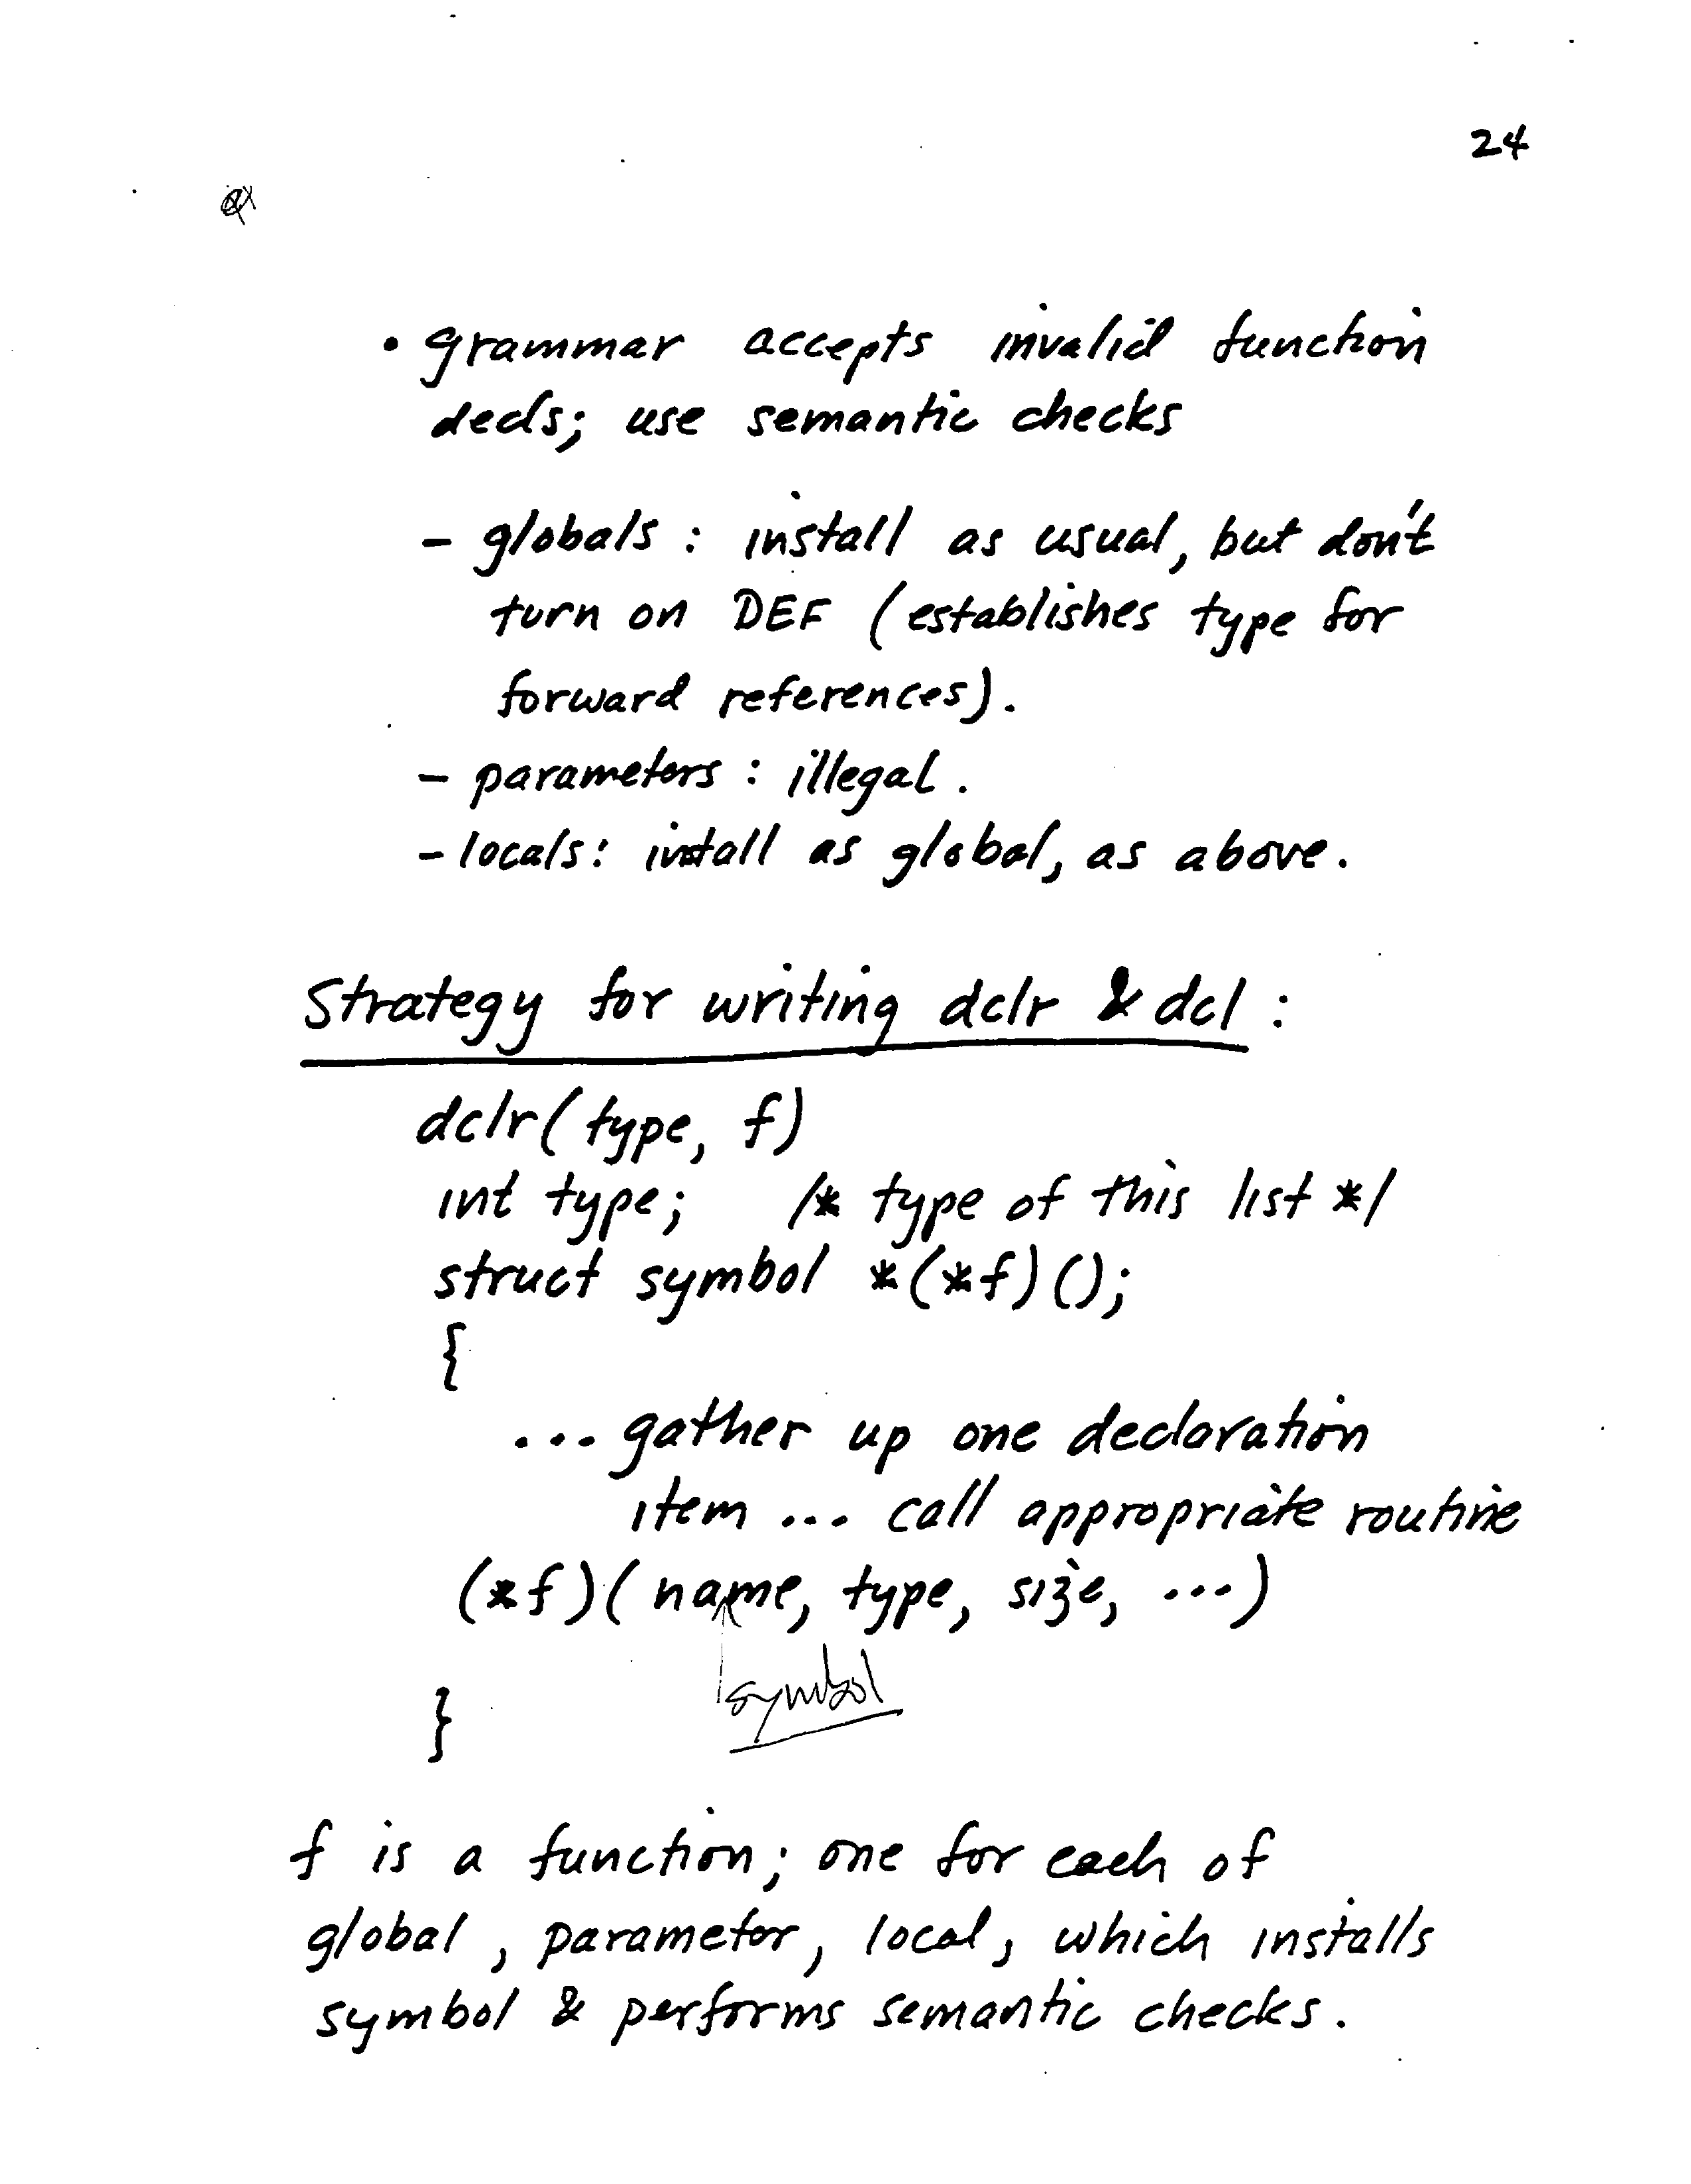 24
• grammar accepts invalid function
decls; use semantic checks
- globals: install as usual, but don't
turn on DEF (establishes type for
forward references).
- parameters: illegal.
- locals: install as global, as above.
Strategy for writing dclr & dcl:
dclr(type, f)
int type; /* type of this list */
struct symbol *(*f)();
{
... gather up one declaration
item ... call appropriate routine
(*f)(name, type, size, ...)
symbol
}
f is a function; one for each of
global, parameter, local, which installs
symbol & performs semantic checks.